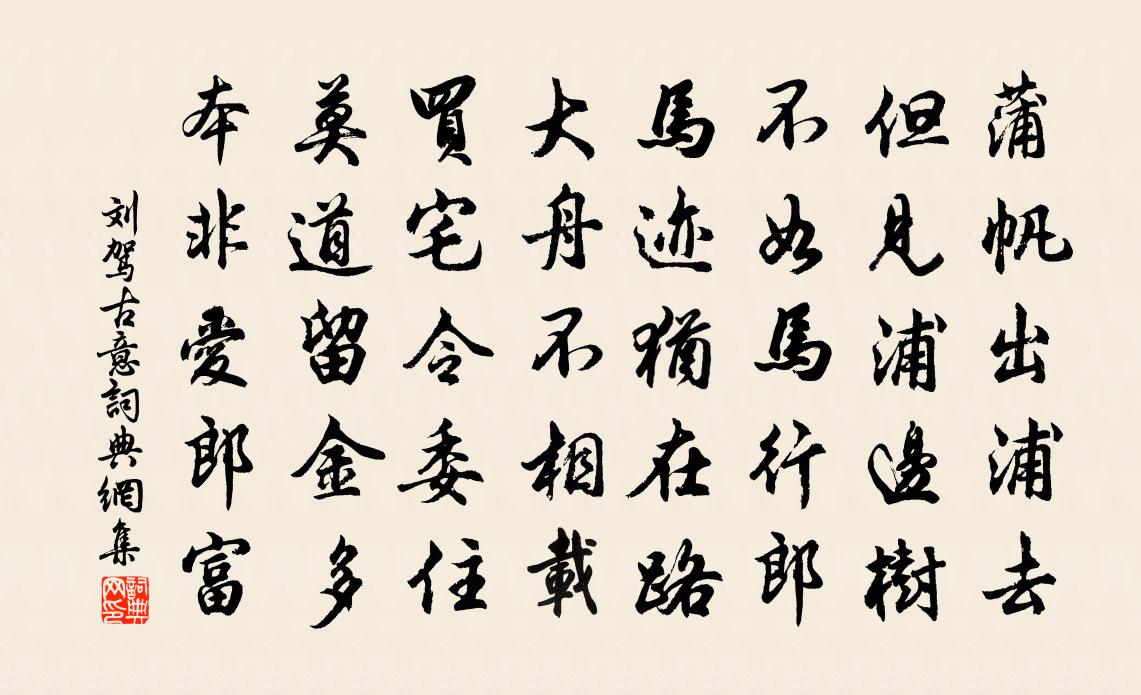 蒲帆出浦去
但見浦邊樹
不如馬行郎
馬迹猶在路
大舟不相載
買宅令委住
莫道留金多
本非愛郎富
刘驾古意詞典網集
詞典網印